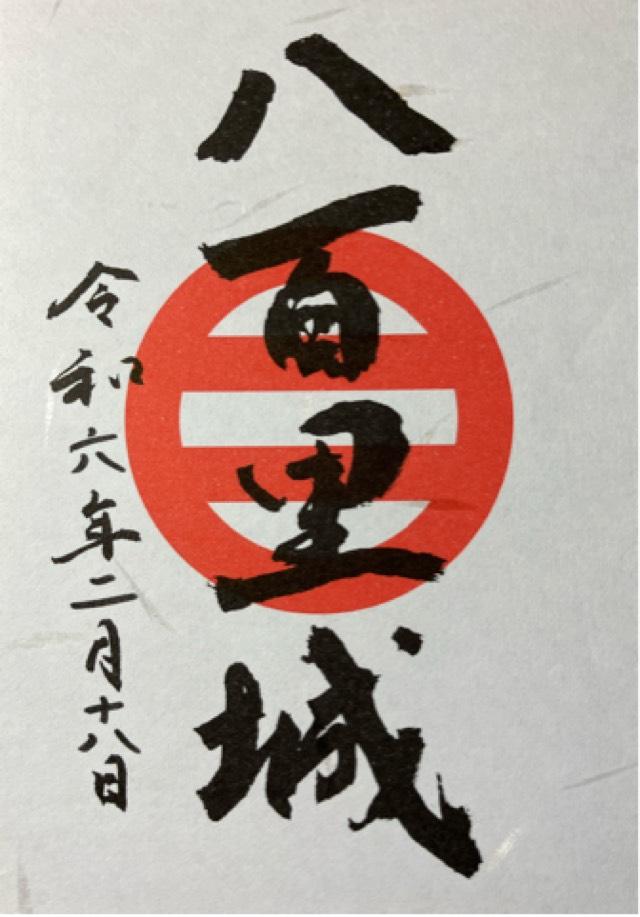 八百里城
令和六年二月十八日